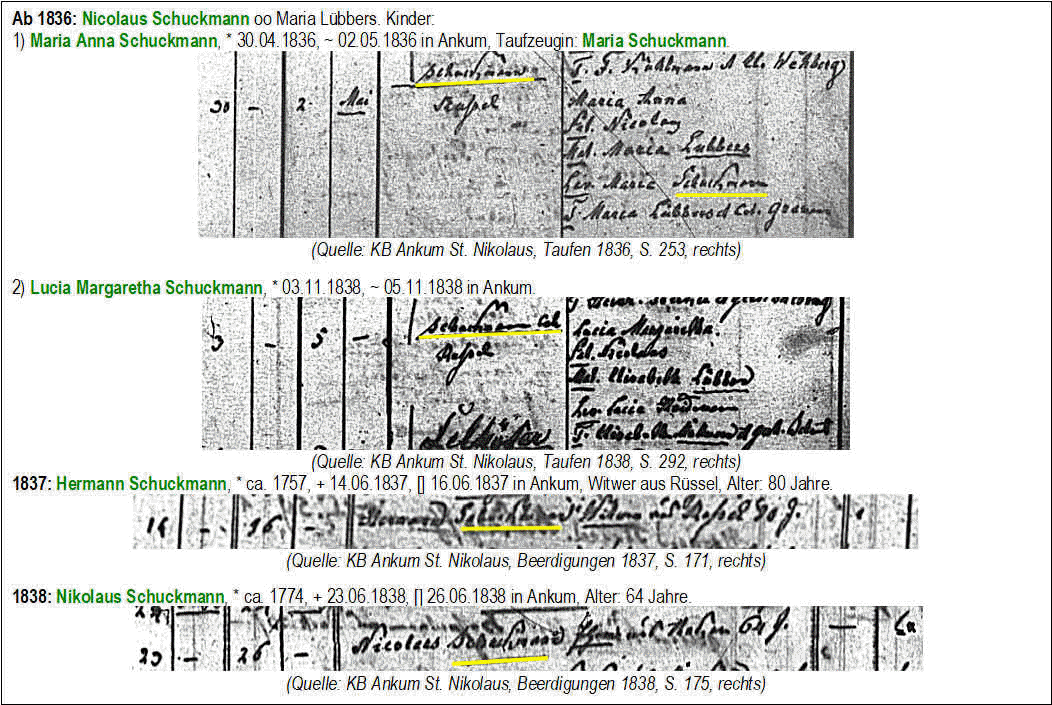 Ab 1836: Nicolaus Schuckmann oo Maria Lübbers. Kinder:
1) Maria Anna Schuckmann, * 30.04.1836, ~ 02.05.1836 in Ankum, Taufzeugin: Maria Schuckmann.
Schuckmann
30 - 2. Mai
Maria Anna
Nicolaus
Maria Lübbers
Maria Schuckmann
T. Maria Lübbers
(Quelle: KB Ankum St. Nikolaus, Taufen 1836, S. 253, rechts)
2) Lucia Margaretha Schuckmann, * 03.11.1838, ~ 05.11.1838 in Ankum.
Schuckmann Col.
3 - 5 -
Lucia Margaretha.
Nicolaus
Elisabeth Lübbers
Lucia
(Quelle: KB Ankum St. Nikolaus, Taufen 1838, S. 292, rechts)
1837: Hermann Schuckmann, * ca. 1757, + 14.06.1837, [] 16.06.1837 in Ankum, Witwer aus Rüssel, Alter: 80 Jahre.
14 - 16. - Hermann Schuckmann
(Quelle: KB Ankum St. Nikolaus, Beerdigungen 1837, S. 171, rechts)
1838: Nikolaus Schuckmann, * ca. 1774, + 23.06.1838, [] 26.06.1838 in Ankum, Alter: 64 Jahre.
23 - 26 - Nicolaus Schuckmann 64 J.
(Quelle: KB Ankum St. Nikolaus, Beerdigungen 1838, S. 175, rechts)